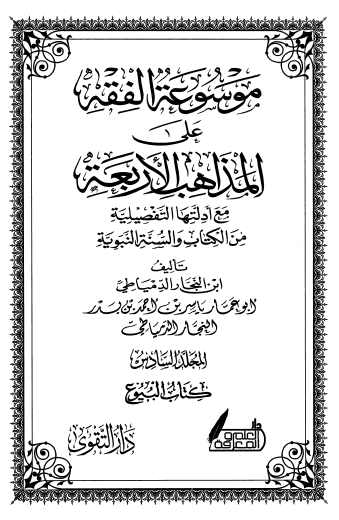 مَوسُوعَةُ الفِقْهِ
عَلَى
المَذَاهِبِ الأَرْبَعَةِ
مَعَ أَدِلَّتِهَا التَّفْصِيْلِيَّةِ
مِنَ الكِتَابِ وَالسُّنَّةِ النَّبَوِيَّةِ
تَأليفُ
ابن النجار الدمياطي
أبو عمار ياسر بن أحمد بن بدر
النجار الدمياطي
المجلد السادس
كتاب البيوع
دار التقوى